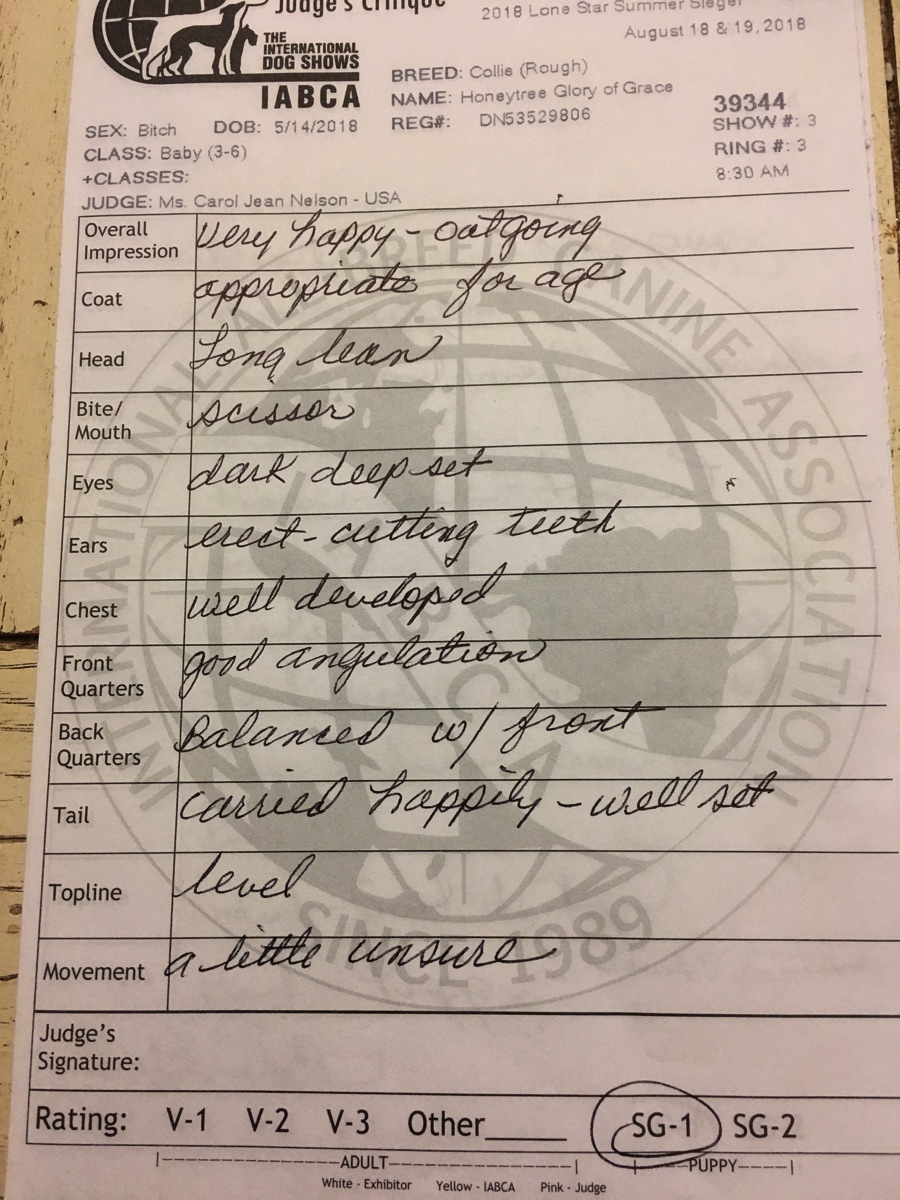 Judge's Critique
2018 Lone Star Summer Sieger
August 18 & 19, 2018
THE
INTERNATIONAL
DOG SHOWS
IABCA
BREED: Collie (Rough)
NAME: Honeytree Glory of Grace
REG#: DN53529806
39344
SHOW #: 3
RING #: 3
8:30 AM
SEX: Bitch DOB: 5/14/2018
CLASS: Baby (3-6)
+CLASSES:
JUDGE: Ms. Carol Jean Nelson - USA
Overall Impression Very happy - outgoing
Coat appropriate for age
Head Long lean
Bite/ Mouth scissor
Eyes dark deep set
Ears erect - cutting teeth
Chest well developed
Front Quarters good angulation
Back Quarters Balanced w/ front
Tail carried happily - well set
Topline level
Movement a little unsure
Judge's
Signature:
Rating: V-1 V-2 V-3 Other_____ SG-1 SG-2
ADULT PUPPY
White - Exhibitor Yellow - IABCA Pink - Judge
INTERNATIONAL ALL BREED CANINE ASSOCIATION
IABCA
SINCE 1989